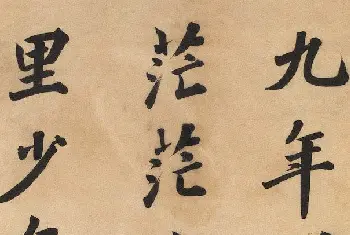 九年
茫茫
里少